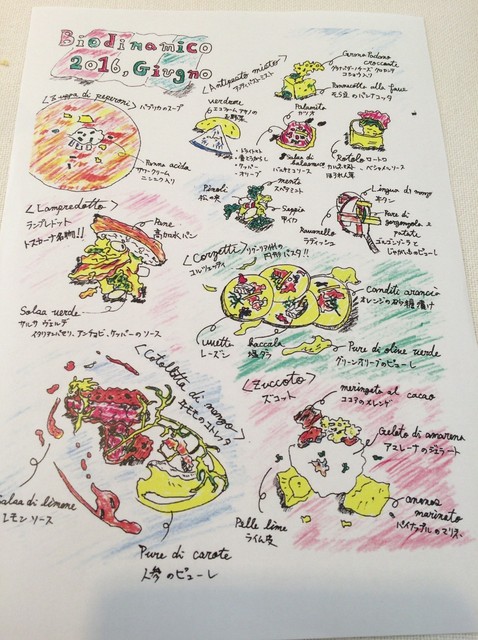 Biodinamico
2016, Giugno
<Zuppa di peperoni>
パプリカのスープ
Panna acida
サワークリーム
ニンニク入り
<Antipasto misto>
アンティパストミスト
Grana Padano
croccante
Panncotta alla fave
verdure
Palamita
カツオ
・ドライトマト
・ケッパー
・オリーブ
Salsa di
balsamico
バルサミコソース
Rotolo ロートロ
ベシャメルソース
ほうれん草
Pinoli
松の実
menta
スペアミント
Seppia
甲イカ
Ravanello
ラディッシュ
Lingua di manzo
牛タン
Pure di
gorgonzola e
patate
ゴルゴンゾーラと
じゃがいものピューレ
<Lampredotto>
ランプレドット
トスカーナ名物!!
Pane
高加水パン
Salsa verde
サルサ ヴェルデ
イタリアンパセリ、アンチョビ・ケッパーのソース
<Corzetti>
コルツェッティ
リグーリア州の
円形パスタ!!
Canditi arancio
オレンジの砂糖漬け
uvette
レーズン
baccala
塩ダラ
Pure di olive verde
グリーンオリーブのピューレ
<Cotoletta di manzo>
牛モモのコトレッタ
Salsa di limone
レモンソース
Pure di carote
人参のピューレ
<Zuccoto>
ズコット
meringata al cacao
ココアのメレンゲ
Gelato di amarena
アマレーナのジェラート
Pelle lime
ライム皮
ananas
marinato
パイナップルのマリネ